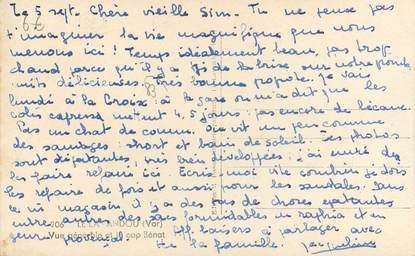 Le 5 sept. Chère vieille Sim. Tu ne peux pas
t'imaginer la vie magnifique que nous
menons ici! Temps idéalement beau, pas trop
chaud parce qu'il y a tjs de la brise sur notre pointe.
nuits délicieuses. Très bonne popote. Je vais
lundi à la Croix: à la gare on m'a dit que les
colis express mettent 4,5 jours: pas encore de bécane.
Pas un chat de connu. On vit un peu comme
des sauvages: short et bain de soleil. Tes photos
sont épatantes, très bien développées: j'ai envie de
les faire refaire ici. Ecris-moi vite combien je dois
les refaire de fois et aussi pour les sandales. Dans
ce magasin, il y a des tas de choses épatantes
entre autres des sacs formidables en raphia et en
706 LE LAVANDOU (Var)
Vue générale et le cap Bénat
genre provençal. Aff. baisers à partager avec
tte la famille. Jacqueline